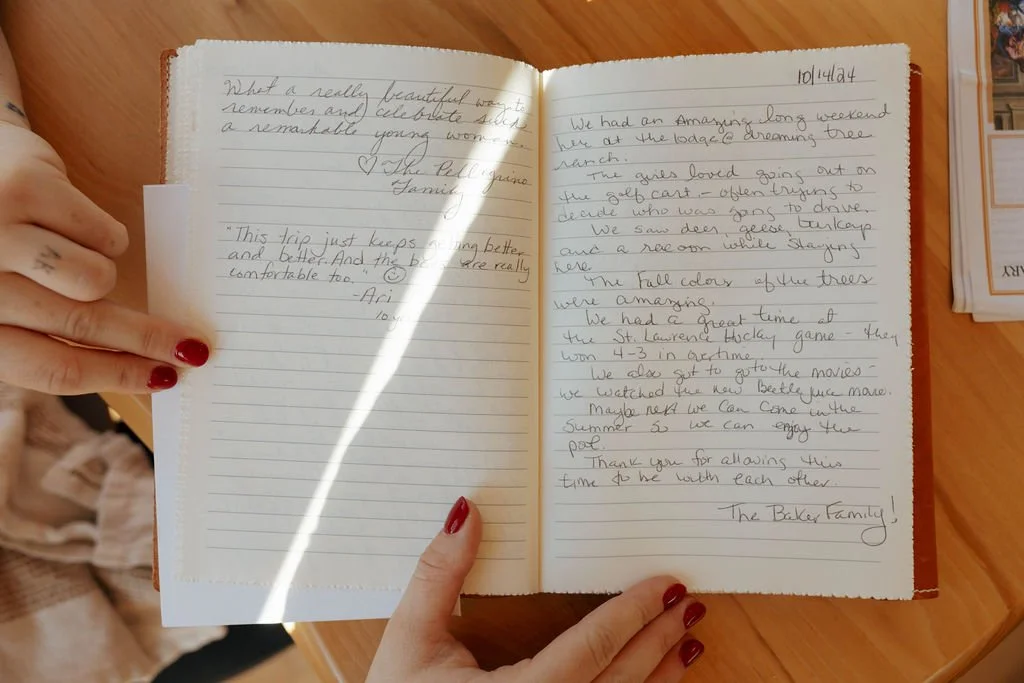 What a really beautiful way to
remember and celebrate such
a remarkable young woman.
♡ The Pellegrino
Family
"This trip just keeps getting better
and better. And the beds are really
comfortable too." ☺
-Ari
10 y
10/14/24
We had an Amazing long weekend
her at the lodge @ dreaming tree
ranch.
The girls loved going out on
the golf cart - often trying to
decide who was going to drive.
We saw deer, geese,
and a racoon while staying
here.
The Fall colors of the trees
were amazing.
We had a great time at
the St. Lawrence Hockey game - they
won 4-3 in overtime.
We also got to go to the movies -
we watched the new Beetlejuice movie.
Maybe next we can come in the
Summer so we can enjoy the
pool.
Thank you for allowing this
time to be with each other.
The Baker Family!
ARY